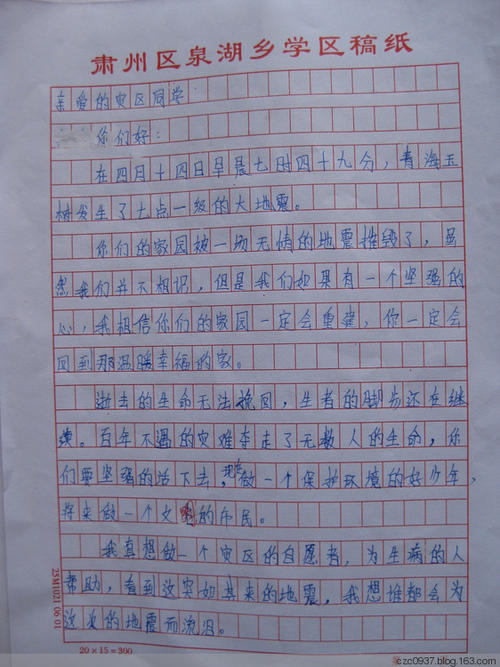 肃州区泉湖乡学区稿纸
亲爱的灾区同学
你们好：
在四月十四日早晨七时四十九分，青海玉
树发生了七点一级的大地震。
你们的家园被一场无情的地震摧毁了，虽
然我们并不相识，但是我们如果有一个坚强的
心，我相信你们的家园一定会重建，你一定会
回到那温暖幸福的家。
逝去的生命无法挽回，生者的脚步还在继
续。百年不遇的灾难夺走了无数人的生命，你
们要坚强的活下去，现在做一个保护环境的好少年，
将来做一个文明的市民。
我真想做一个灾区的自愿者，为生病的人
帮助，看到这突如其来的地震，我想谁都会为
这次的地震而流泪。
25M1021 06 01
20×15=300
czc0937.blog.163.com